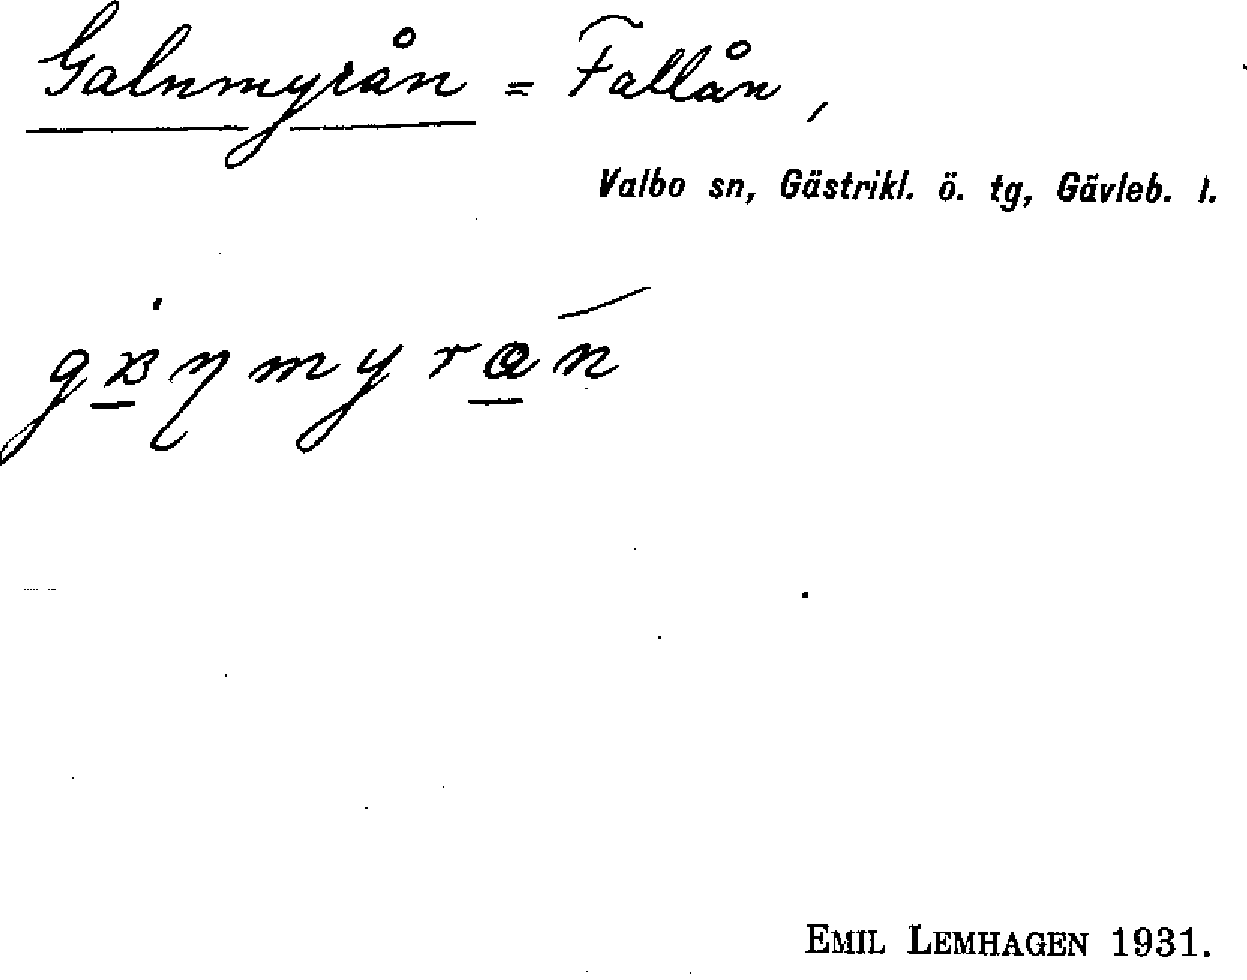 Galnmyrån = Fallån,
Valbo sn, Gästrikl. ö. tg, Gävleb. l.
EMIL LEMHAGEN 1931.